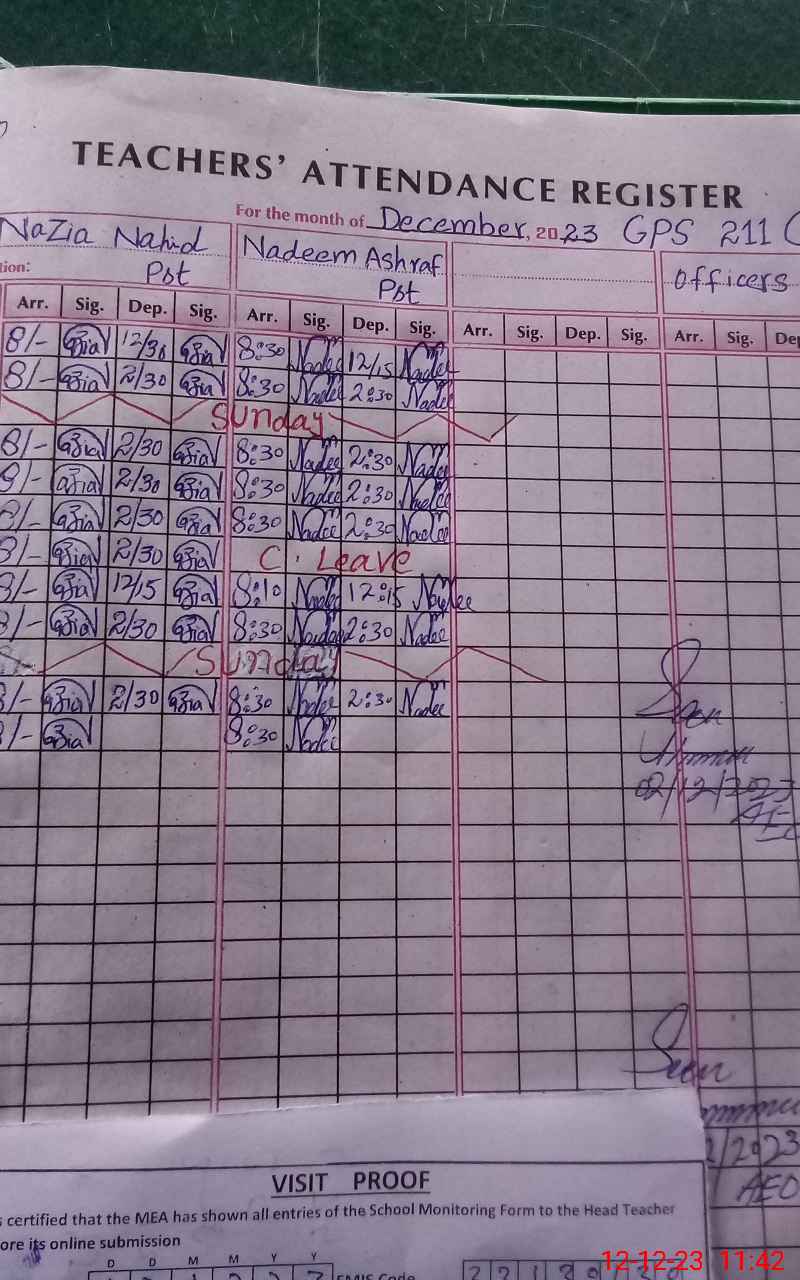 TEACHERS' ATTENDANCE REGISTER
For the month of December, 2023 GPS 211
Nazia Nahid Nadeem Ashraf
tion: Pst Pst Officers
Arr. Sig. Dep. Sig. Arr. Sig. Dep. Sig. Arr. Sig. Dep. Sig. Arr. Sig. Dep
8/- 12/30 8:30 Nadee 12/15 Nadee
8/- 2/30 8:30 Nadee 2:30 Nadee
Sunday
8/- 2/30 8:30 Nadee 2:30 Nadee
8/- 2/30 8:30 Nadee 2:30 Nadee
8/- 2/30 8:30 Nadee 2:30 Nadee
8/- 2/30 C. Leave
8/- 12/15 8:10 Nadee 12:15 Nadee
8/- 2/30 8:30 Nadee 2:30 Nadee
Sunday
8/- 2/30 8:30 Nadee 2:30 Nadee
8/- 8:30 Nadee
Seen
02/12/2023
Seen
2/2023
AEO
VISIT PROOF
s certified that the MEA has shown all entries of the School Monitoring Form to the Head Teacher
ore its online submission
D D M M Y Y
EMIS Code
12-12-23 11:42